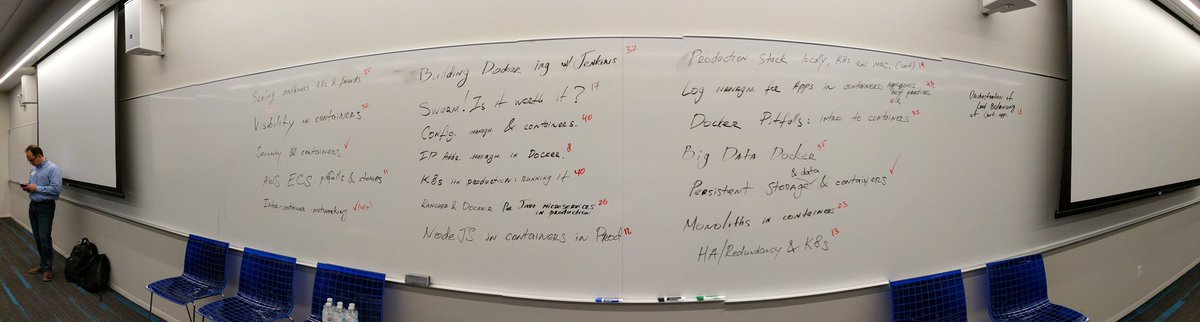 Scaling containers K8s & 20
Visibility in containers 32
Security & containers ✓
AWS ECS: pitfalls & 11
Inter-container networking ✓
Building Docker img w/ Jenkins 32
Swarm! Is it worth it? 17
Config. managm & containers. 40
IP Addr. managm. in Docker. 8
K8s in production: running it 40
Rancher & Docker for Java microservices 26
in production
NodeJS in containers in Prod 12
Production Stack locally, K8s on Mac. (int)
Log managm. for Apps in containers: 43
best practice
elk
Docker Pitfalls: intro to containers 32
Big Data Docker 35
& data
Persistent Storage & containers ✓
Monoliths in containers 23
HA/Redundancy & K8s 13
Orchestration of
Load Balancing
of cont. app. 13